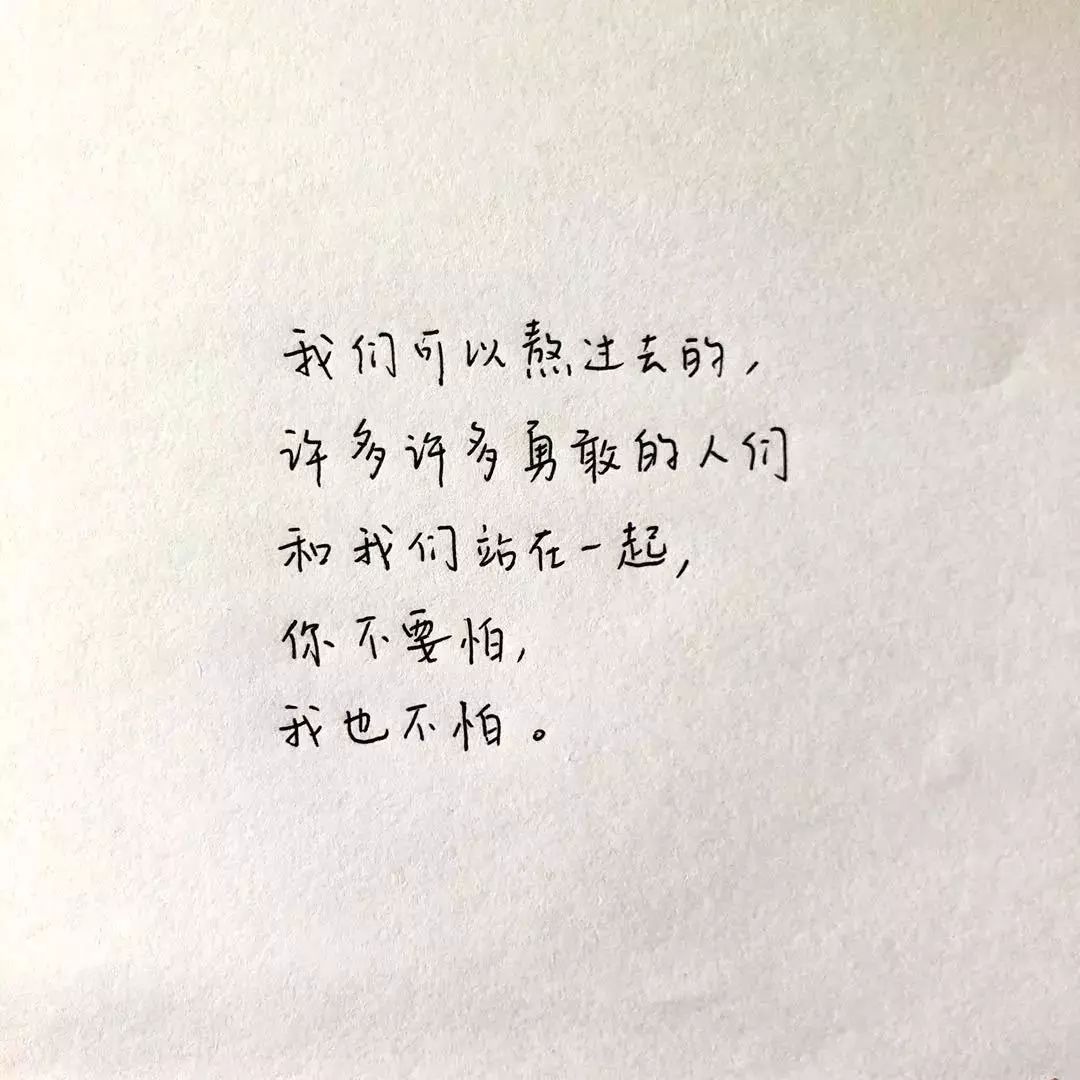 我们可以熬过去的,
许多许多勇敢的人们
和我们站在一起,
你不要怕,
我也不怕。